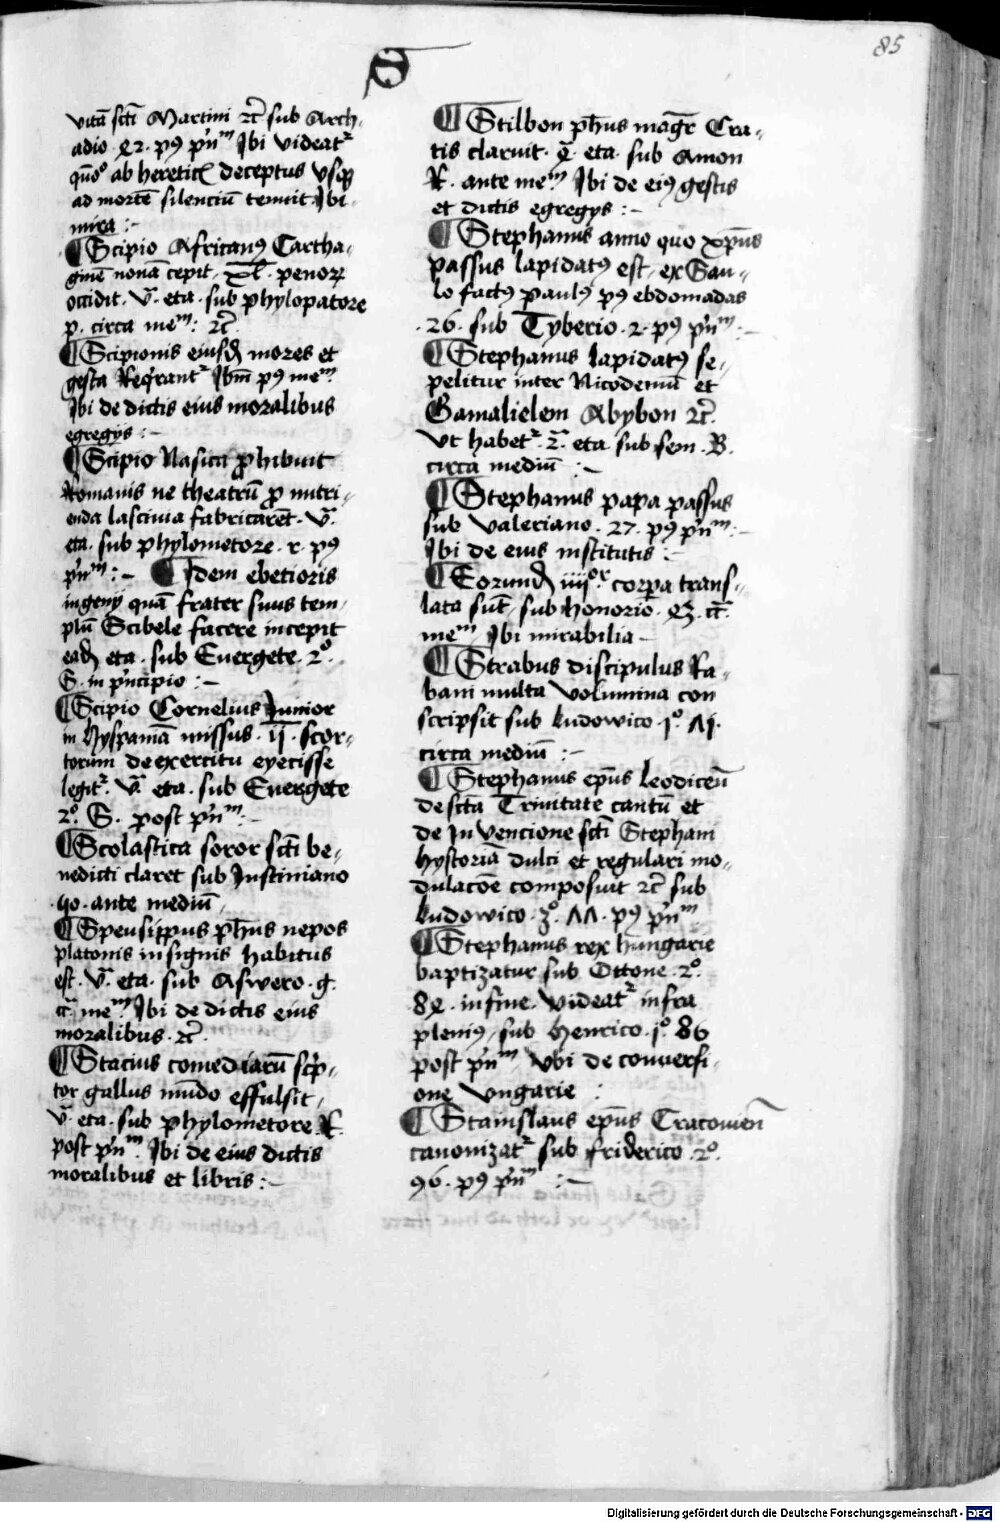 85
S
vitā sctī Martini ⁊c̄ sub Arch-
adio . 42 . pꝰ pⁿm Ibi videatʳ
qūo ab hereticꝭ deceptus vsqꝫ
ad mortē silenciū tenuit . Ibi
mira :-
¶ Scipio Affricanꝰ Cartha-
ginē nouā cepit . xl . penoꝝ
occidit . v̄ . eta . sub phylopatore
p . circa meᵐ : ⁊c̄
¶ Scipionis eiusđ mores et
gesta Reqͥrantʳ Ibm̄ pꝰ meᵐ
Ibi de dictis eius moralibus
egregijs :-
¶ Scipio Nasica ꝓhibuit
Romanis ne theatrū ꝓ nutri-
enda lasciuia fabricarēt . v̄ .
eta . sub phylometore . r . pꝰ
pⁿm :- ¶ Idem ebetioris
ingenij quā frater suus tem-
plū Scibele facere incepit
eađ eta . sub Euergete . 2º .
S . in pͥncipio :-
¶ Scipio Cornelius Iunior
in hyspaniā missus . ii . scor-
torum de exercitu eyecisse
legitʳ . v̄ . eta . sub Euergete
2º . S . post pⁿm :-
¶ Scolastica soror sctī be-
nedicti claret sub Iustiniano
. 40 . ante mediū
¶ Speusippus ph̄us nepos
platonis insignis habitus
est . v̄ . eta . sub Aswero . g .
cͣ meᵐ Ibi de dictis eius
moralibus . ⁊c̄ .
¶ Stacius comediarū scͥp-
tor gallus mūdo effulsit ,
v̄ . eta . sub phylometore R .
post pⁿm Ibi de eius dictis
moralibus et libris :-
¶ Stilbon ph̄us magr̄ Cra-
tis claruit . q̄ . eta . sub Amon
R . ante meᵐ Ibi de eiꝰ gestis
et dictis egregijs :-
¶ Stephanus anno quo xp̄us
passus lapidatꝰ est , ex Sau-
lo factꝰ paulꝰ pꝰ ebdomadas
. 26 . sub Tyberio . 2 . pꝰ pⁿm :-
¶ Stephanus lapidatꝰ se-
pelitur inter Nicodemū et
Gamalielem Abybon ⁊c̄ .
vt habetʳ . 2̄ . eta . sub sem . B .
circa mediū :-
¶ Stephanus papa passus
sub valeriano . 27 . pꝰ pⁿm :-
Ibi de eius institutis :-
¶ Eorunđ iiiiºʳ corpa trans-
lata sūt , sub honorio . 43 . cͣ
meᵐ Ibi mirabilia -
¶ Strabus discipulus Ra-
bani multa volumina con
scripsit sub ludowico . 1º . 71 .
circa mediū :-
¶ Stephanus ep̄us leodiceñ
de sctā Trinitate cantū et
de Inuencione sctī Stephani
hystoriā dulci et regulari mo-
dulacōe composuit ⁊c̄ sub
ludowico . 3º . 77 . pꝰ pⁿm
¶ Stephanus rex hungarie
baptizatur sub Ottone . 2º .
84 . in fine . videatʳ infra
pleniꝰ , sub henrico . 1º . 86
post pⁿm vbi de conuersi-
one vngarie :
¶ Stanislaus ep̄us Cracouieñ
canonizatʳ sub friderico . 2º .
96 . pꝰ pⁿm :-
Digitalisierung gefördert durch die Deutsche Forschungsgemeinschaft - DFG